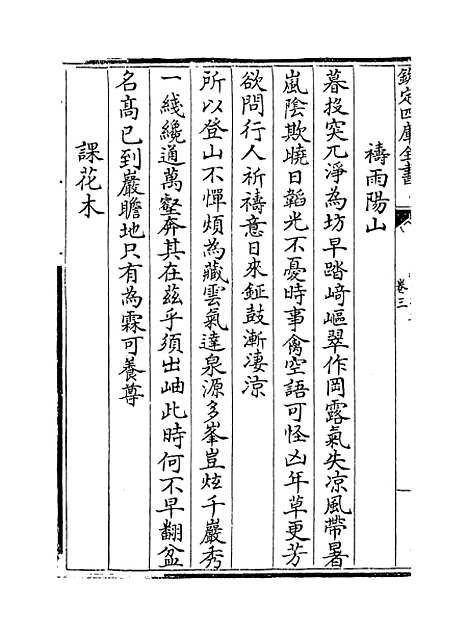 欽定四庫全書
卷三
禱雨陽山
暮投突兀淨為坊早踏﨑嶇翠作岡露氣失凉風帶暑
嵐陰欺曉日韜光不憂時事禽空語可怪凶年草更芳
欲問行人祈禱意日來鉦鼓漸凄涼
所以登山不憚煩為藏雲氣達泉源多峯豈炫千巖秀
一綫纔通萬壑奔其在兹乎須出岫此時何不早翻盆
名髙已到巖瞻地只有為霖可養尊
課花木